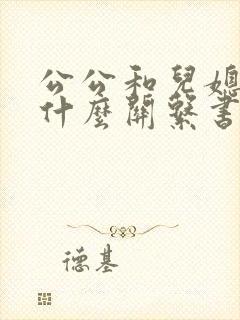 公公和兒媳
什麼關繫書
德基